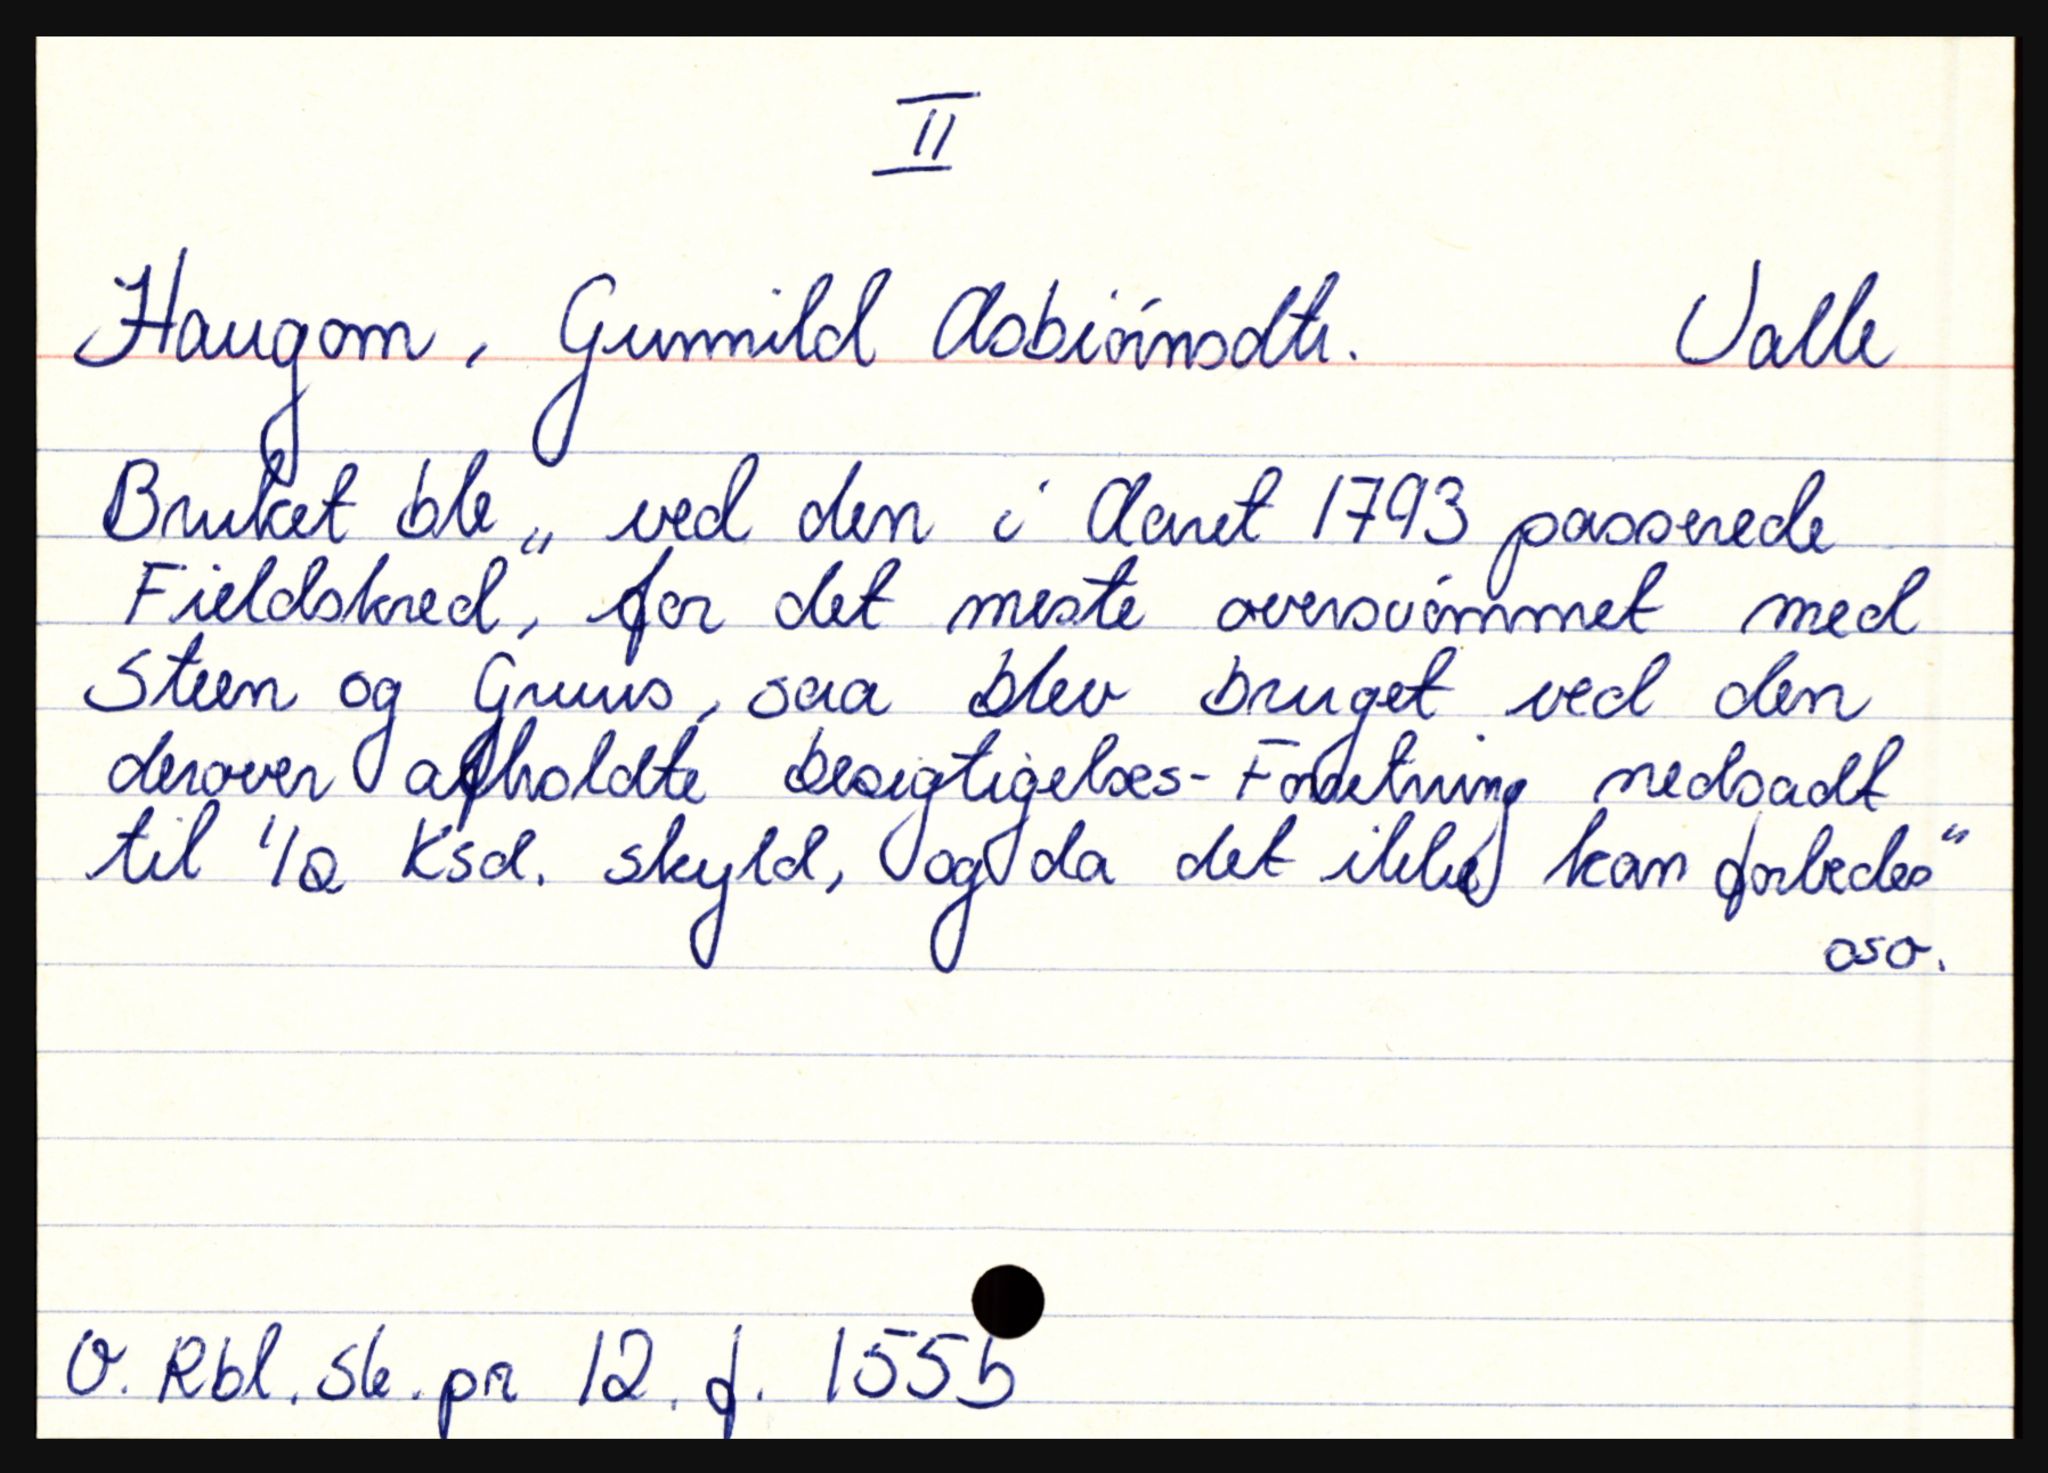 II
Haugom, Gunnild Asbiörnsdtr. Valle
Bruket ble „ ved den i Aaret 1793 passerede
Fieldskred, for det meste oversvömmet med
Steen og Gruus, saa blev bruget ved den
derover afholdte besigtigelses-Forretning nedsadt
til 1/2 Ksd. skyld, og da det ikke kan forbedes"
osv.
O. Rbl. Sk. pr 12. f. 155b